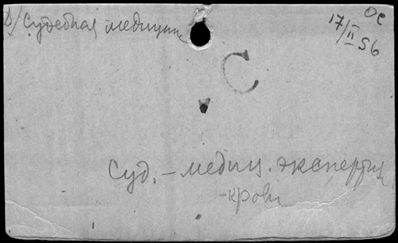 2/ Судебная медицин
Ос
17/II 56
С
Суд. – медиц. экспертиз
– крови